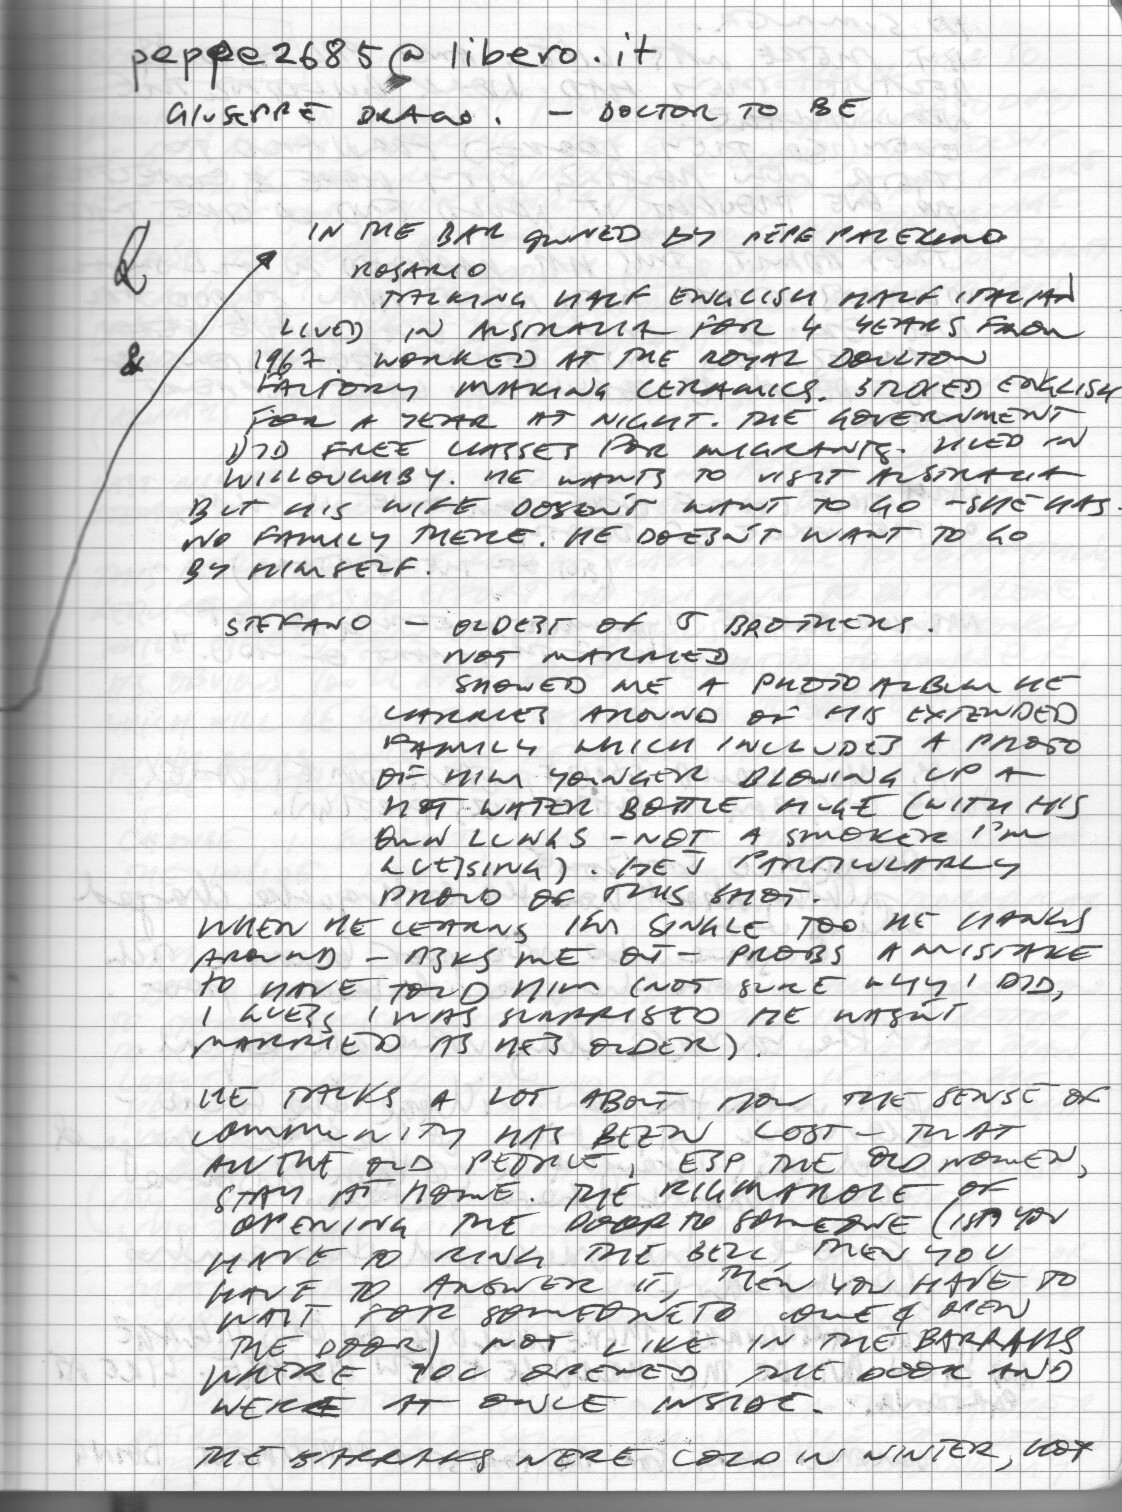 peppe2685@libero.it
GIUSEPPE DRAGO. - DOCTOR TO BE
IN THE BAR OWNED BY PEPE PALERMO
ROSARIO
&
TALKING HALF ENGLISH HALF ITALIAN
LIVED IN AUSTRALIA FOR 4 YEARS FROM
1967. WORKED AT THE ROYAL DOULTON
FACTORY MAKING CERAMICS. STUDIED ENGLISH
FOR A YEAR AT NIGHT. THE GOVERNMENT
DID FREE CLASSES FOR MIGRANTS. LIVED IN
WILLOUGHBY. HE WANTS TO VISIT AUSTRALIA
BUT HIS WIFE DOESN'T WANT TO GO - SHE HAS
NO FAMILY THERE. HE DOESN'T WANT TO GO
BY HIMSELF.
STEFANO - OLDEST OF 5 BROTHERS.
NOT MARRIED
SHOWED ME A PHOTO ALBUM HE
CARRIES AROUND OF HIS EXTENDED
FAMILY WHICH INCLUDES A PHOTO
OF HIM YOUNGER BLOWING UP A
HOT WATER BOTTLE HUGE (WITH HIS
OWN LUNGS - NOT A SMOKER I'M
GUESSING). HE'S PARTICULARLY
PROUD OF THIS SHOT.
WHEN HE LEARNS I'M SINGLE TOO HE HANGS
AROUND - ASKS ME OUT - PROBS A MISTAKE
TO HAVE TOLD HIM (NOT SURE WHY I DID,
I GUESS I WAS SURPRISED HE WASN'T
MARRIED AS HE'S OLDER).
HE TALKS A LOT ABOUT HOW THE SENSE OF
COMMUNITY HAS BEEN LOST - THAT
ALL THE OLD PEOPLE, ESP THE OLD WOMEN,
STAY AT HOME. THE RIGMAROLE OF
OPENING THE DOOR TO SOMEONE (1ST YOU
HAVE TO RING THE BELL, THEN YOU
HAVE TO ANSWER IT, THEN YOU HAVE TO
WAIT FOR SOMEONE TO COME & OPEN
THE DOOR) NOT LIKE IN THE BARRAKS
WHERE YOU OPENED THE DOOR AND
WERE AT ONCE INSIDE.
THE BARRAKS WERE COLD IN WINTER, HOT